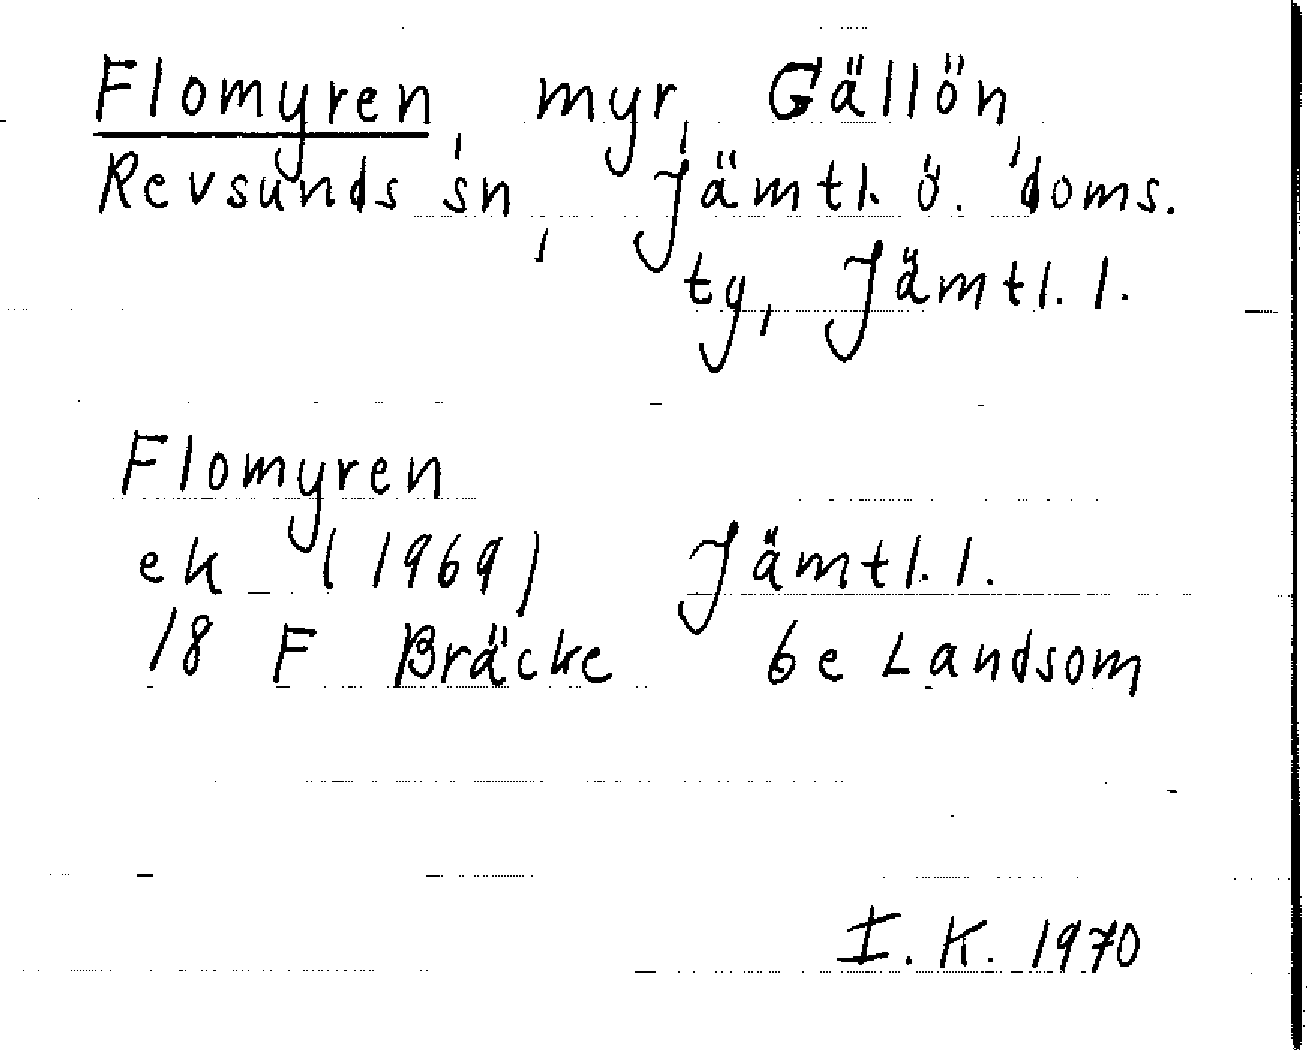 Flomyren, myr, Gällön,
Revsunds sn, Jämtl. ö. doms.
tg, Jämtl. l.
Flomyren
ek (1969) Jämtl. l.
18 F Bräcke 6e Landsom
I. K. 1970